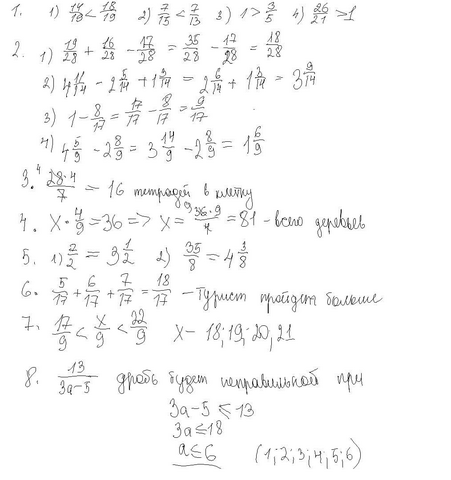 1. 1) 14/19 < 18/19 2) 7/15 < 7/13 3) 1 > 3/5 4) 26/21 > 1
2. 1) 19/28 + 16/28 - 17/28 = 35/28 - 17/28 = 18/28
2) 4 11/14 - 2 5/14 + 1 3/14 = 2 6/14 + 1 3/14 = 3 9/14
3) 1 - 8/17 = 17/17 - 8/17 = 9/17
4) 4 5/9 - 2 8/9 = 3 14/9 - 2 8/9 = 1 6/9
3. 28·4/7 = 16 тетрадей в клетку
4. x · 4/9 = 36 => x = 36·9/4 = 81 - всего деревьев
5. 1) 7/2 = 3 1/2 2) 35/8 = 4 3/8
6. 5/17 + 6/17 + 7/17 = 18/17 - Турист пройдет больше
7. 17/9 < x/9 < 22/9 x - 18; 19; 20, 21
8. 13/3a-5 дробь будет неправильной при
3a-5 ≤ 13
3a ≤ 18
a ≤ 6 (1; 2; 3; 4; 5; 6)